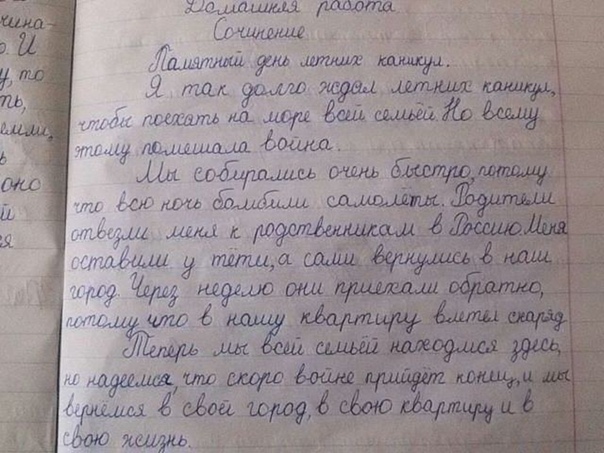 чина-
о. И
у, то
ть,
емли,
ь
оно
й
ся
Домашняя работа
Сочинение
Памятный день летних каникул.
Я так долго ждал летних каникул,
чтобы поехать на море всей семьёй. Но всему
этому помешала война.
Мы собирались очень быстро, потому
что всю ночь бомбили самолёты. Родители
отвезли меня к родственникам в Россию. Меня
оставили у тёти, а сами вернулись в наш
город. Через неделю они приехали обратно,
потому что в нашу квартиру влетел снаряд
Теперь мы всей семьёй находимся здесь,
но надеемся, что скоро войне прийдёт конец, и мы
вернёмся в свой город, в свою квартиру и в
свою жизнь.